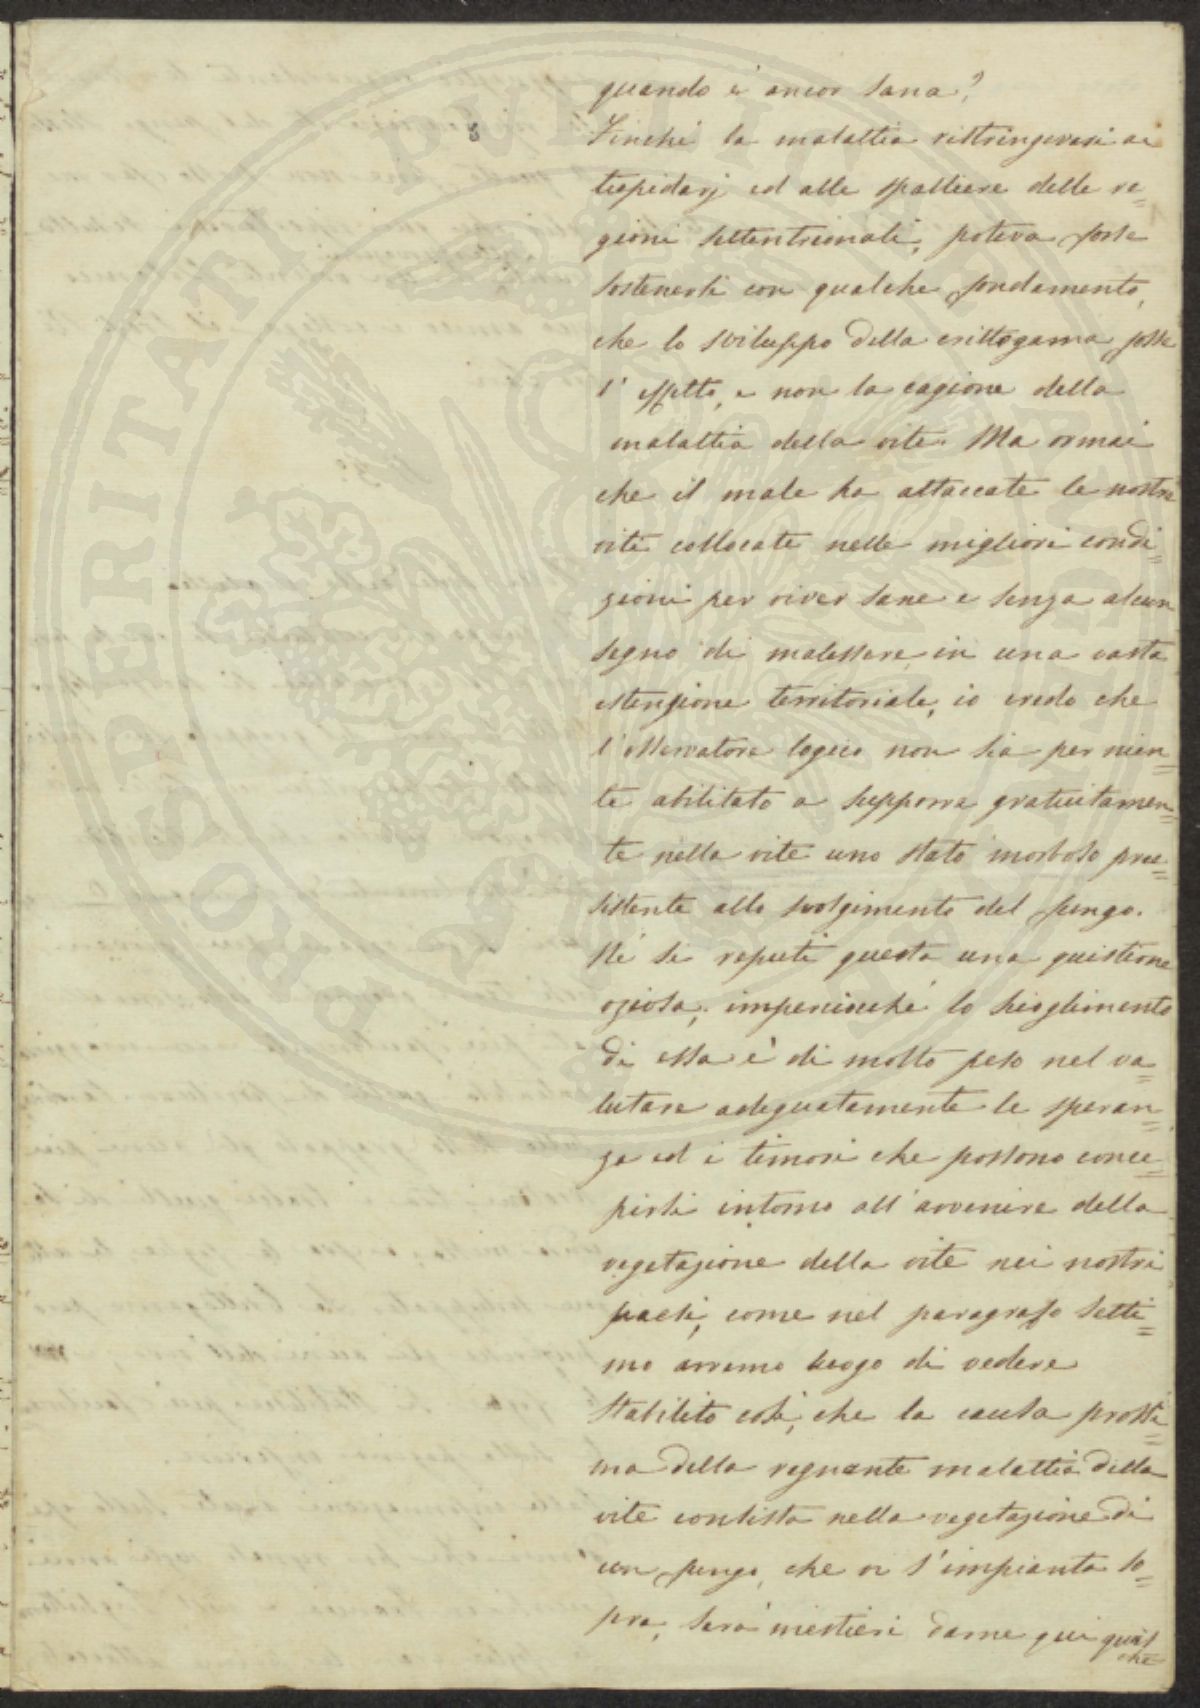 quando è ancor sana?
Finché la malattia ristringevasi ai
tiepidarj ed alle spalliere delle re=
gioni settentrionali, poteva forse
sostenersi con qualche fondamento,
che lo sviluppo della crittogama fosse
l'effetto, e non la cagione della
malattia della vite. Ma ormai
che il male ha attaccate le nostre
viti collocate nelle migliori condi=
zioni per viver sane e senza alcun
segno di malessere in una vasta
estenzione territoriale, io credo che
l'osservatore logico non sia per nien=
te abilitato a supporre gratuitamen=
te nella vite uno stato morboso pree=
sistente allo svolgimento del fungo.
Né si reputi questa una quistione
oziosa; imperciocché lo scioglimento
di essa è di molto peso nel va=
lutare adeguatamente le speran=
ze ed i timori che possono conce=
pirsi intorno all'avvenire della
vegetazione della vite nei nostri
paesi, come nel paragrafo setti=
mo avremo luogo di vedere
Stabilito così, che la causa prossi=
ma della regnante malattia della
vite consista nella vegetazione di
un fungo, che vi s'impianta so=
pra, sarà mestieri darne qui qual=
che
PROSPERITATI PUBLICAE AUGENDAE